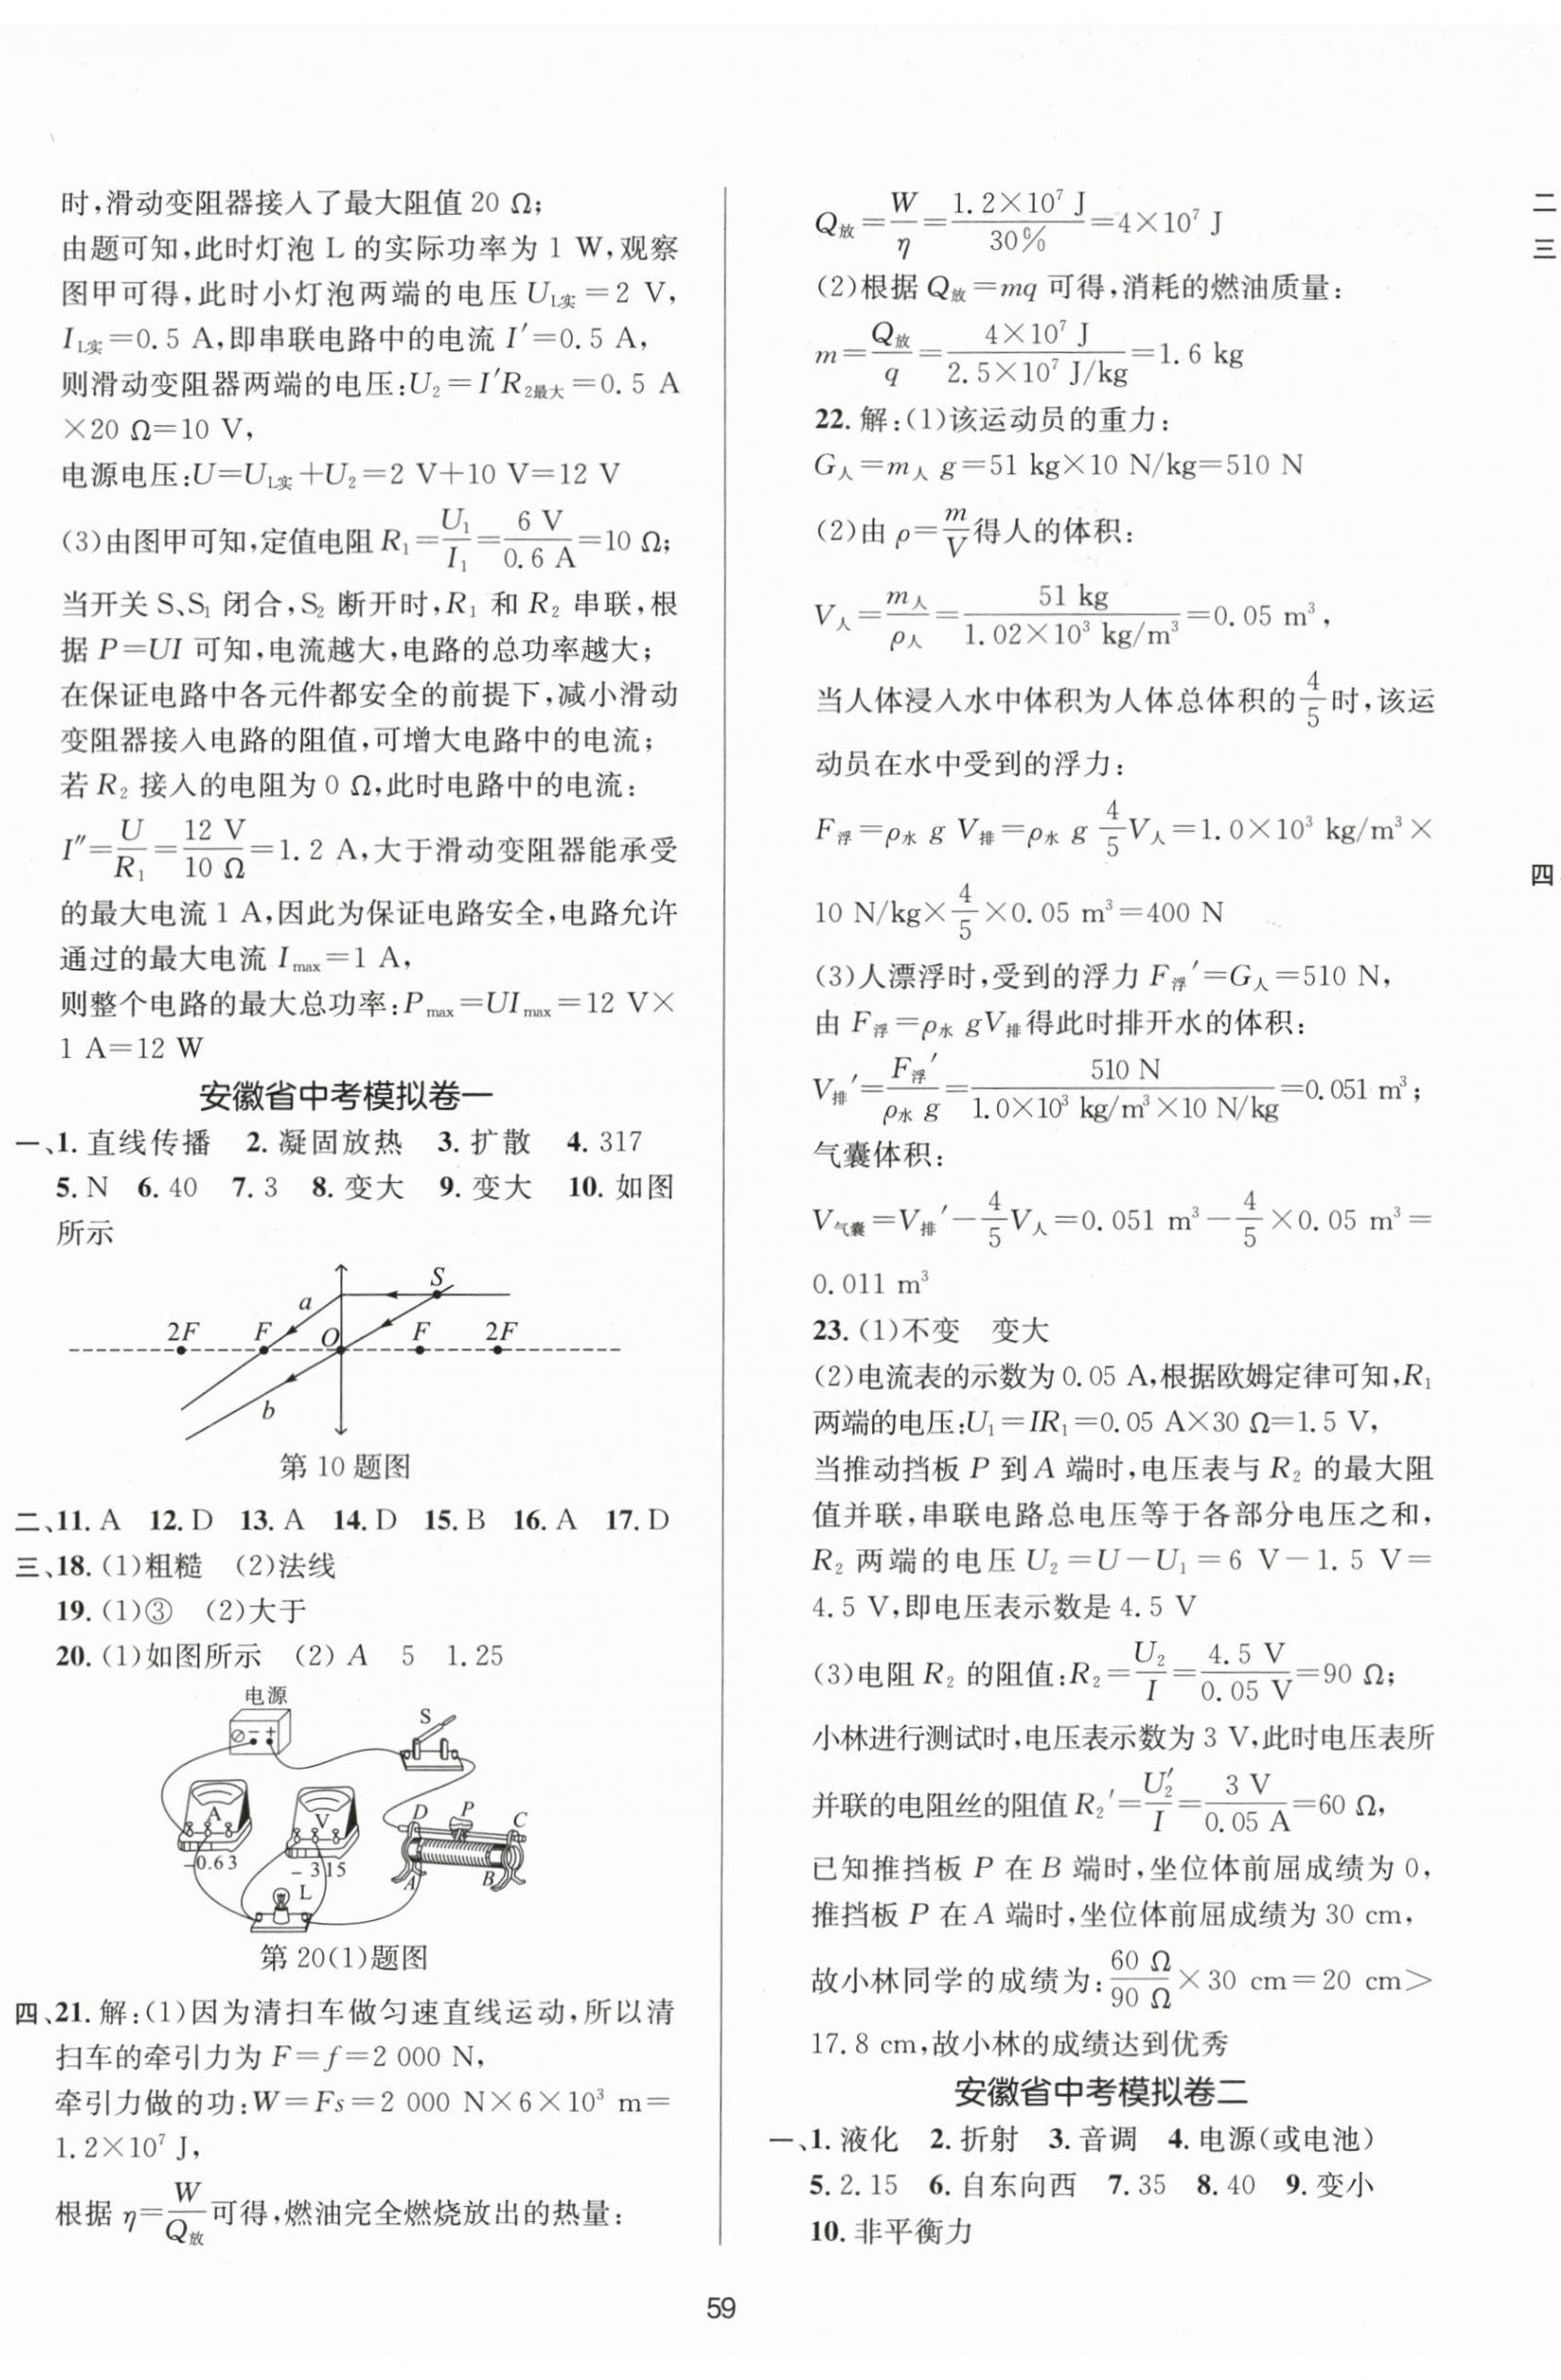 时,滑动变阻器接入了最大阻值20 Ω;
由题可知,此时灯泡 L 的实际功率为 1 W,观察
图甲可得,此时小灯泡两端的电压 U_L实=2 V,
I_L实=0.5 A,即串联电路中的电流 I′=0.5 A,
则滑动变阻器两端的电压:U₂=I′R_2最大=0.5 A
×20 Ω=10 V,
电源电压:U=U_L实+U₂=2 V+10 V=12 V
(3)由图甲可知,定值电阻 R₁=U₁/I₁=6 V/0.6 A=10 Ω;
当开关 S、S₁ 闭合,S₂ 断开时,R₁ 和 R₂ 串联,根
据 P=UI 可知,电流越大,电路的总功率越大;
在保证电路中各元件都安全的前提下,减小滑动
变阻器接入电路的阻值,可增大电路中的电流;
若 R₂ 接入的电阻为 0 Ω,此时电路中的电流:
I″=U/R₁=12 V/10 Ω=1.2 A,大于滑动变阻器能承受
的最大电流 1 A,因此为保证电路安全,电路允许
通过的最大电流 I_max=1 A,
则整个电路的最大总功率:P_max=UI_max=12 V×
1 A=12 W
安徽省中考模拟卷一
一、1. 直线传播 2. 凝固放热 3. 扩散 4. 317
5. N 6. 40 7. 3 8. 变大 9. 变大 10. 如图
所示
S
a
2F F O F 2F
b
第 10 题图
二、11. A 12. D 13. A 14. D 15. B 16. A 17. D
三、18. (1)粗糙 (2)法线
19. (1)③ (2)大于
20. (1)如图所示 (2) A 5 1.25
电源
− +
S
A
V
D P C
−0.6 3
− 3 15
A B
L
第 20(1)题图
四、21. 解:(1)因为清扫车做匀速直线运动,所以清
扫车的牵引力为 F=f=2 000 N,
牵引力做的功:W=Fs=2 000 N×6×10³ m=
1.2×10⁷ J,
根据 η=W/Q放可得,燃油完全燃烧放出的热量:
Q放=W/η=1.2×10⁷ J/30%=4×10⁷ J
(2)根据 Q放=mq 可得,消耗的燃油质量:
m=Q放/q=4×10⁷ J/2.5×10⁷ J/kg=1.6 kg
22. 解:(1)该运动员的重力:
G人=m人 g=51 kg×10 N/kg=510 N
(2)由 ρ=m/V得人的体积:
V人=m人/ρ人=51 kg/1.02×10³ kg/m³=0.05 m³,
当人体浸入水中体积为人体总体积的4/5时,该运
动员在水中受到的浮力:
F浮=ρ水 g V排=ρ水 g 4/5V人=1.0×10³ kg/m³×
10 N/kg×4/5×0.05 m³=400 N
(3)人漂浮时,受到的浮力 F浮′=G人=510 N,
由 F浮=ρ水 gV排得此时排开水的体积:
V排′=F浮′/ρ水 g=510 N/1.0×10³ kg/m³×10 N/kg=0.051 m³;
气囊体积:
V气囊=V排′−4/5V人=0.051 m³−4/5×0.05 m³=
0.011 m³
23. (1)不变 变大
(2)电流表的示数为 0.05 A,根据欧姆定律可知,R₁
两端的电压:U₁=IR₁=0.05 A×30 Ω=1.5 V,
当推动挡板 P 到 A 端时,电压表与 R₂ 的最大阻
值并联,串联电路总电压等于各部分电压之和,
R₂ 两端的电压 U₂=U−U₁=6 V−1.5 V=
4.5 V,即电压表示数是 4.5 V
(3)电阻 R₂ 的阻值:R₂=U₂/I=4.5 V/0.05 V=90 Ω;
小林进行测试时,电压表示数为 3 V,此时电压表所
并联的电阻丝的阻值 R₂′=U₂′/I=3 V/0.05 A=60 Ω,
已知推挡板 P 在 B 端时,坐位体前屈成绩为 0,
推挡板 P 在 A 端时,坐位体前屈成绩为 30 cm,
故小林同学的成绩为:60 Ω/90 Ω×30 cm=20 cm>
17.8 cm,故小林的成绩达到优秀
安徽省中考模拟卷二
一、1. 液化 2. 折射 3. 音调 4. 电源(或电池)
5. 2.15 6. 自东向西 7. 35 8. 40 9. 变小
10. 非平衡力
二
三
四
59